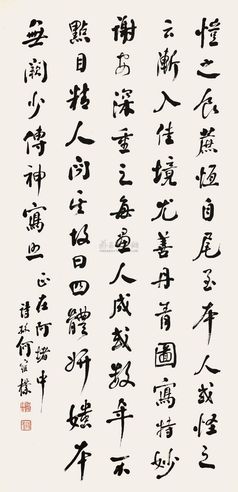 愷之食蔗恒自尾至本人或怪之
云漸入佳境尤善丹青圖寫特妙
謝安深重之每畫人成或數年不
點目精人問其故曰四體妍媸本
無闕少傳神寫照正在阿堵中
詩孫何維樸